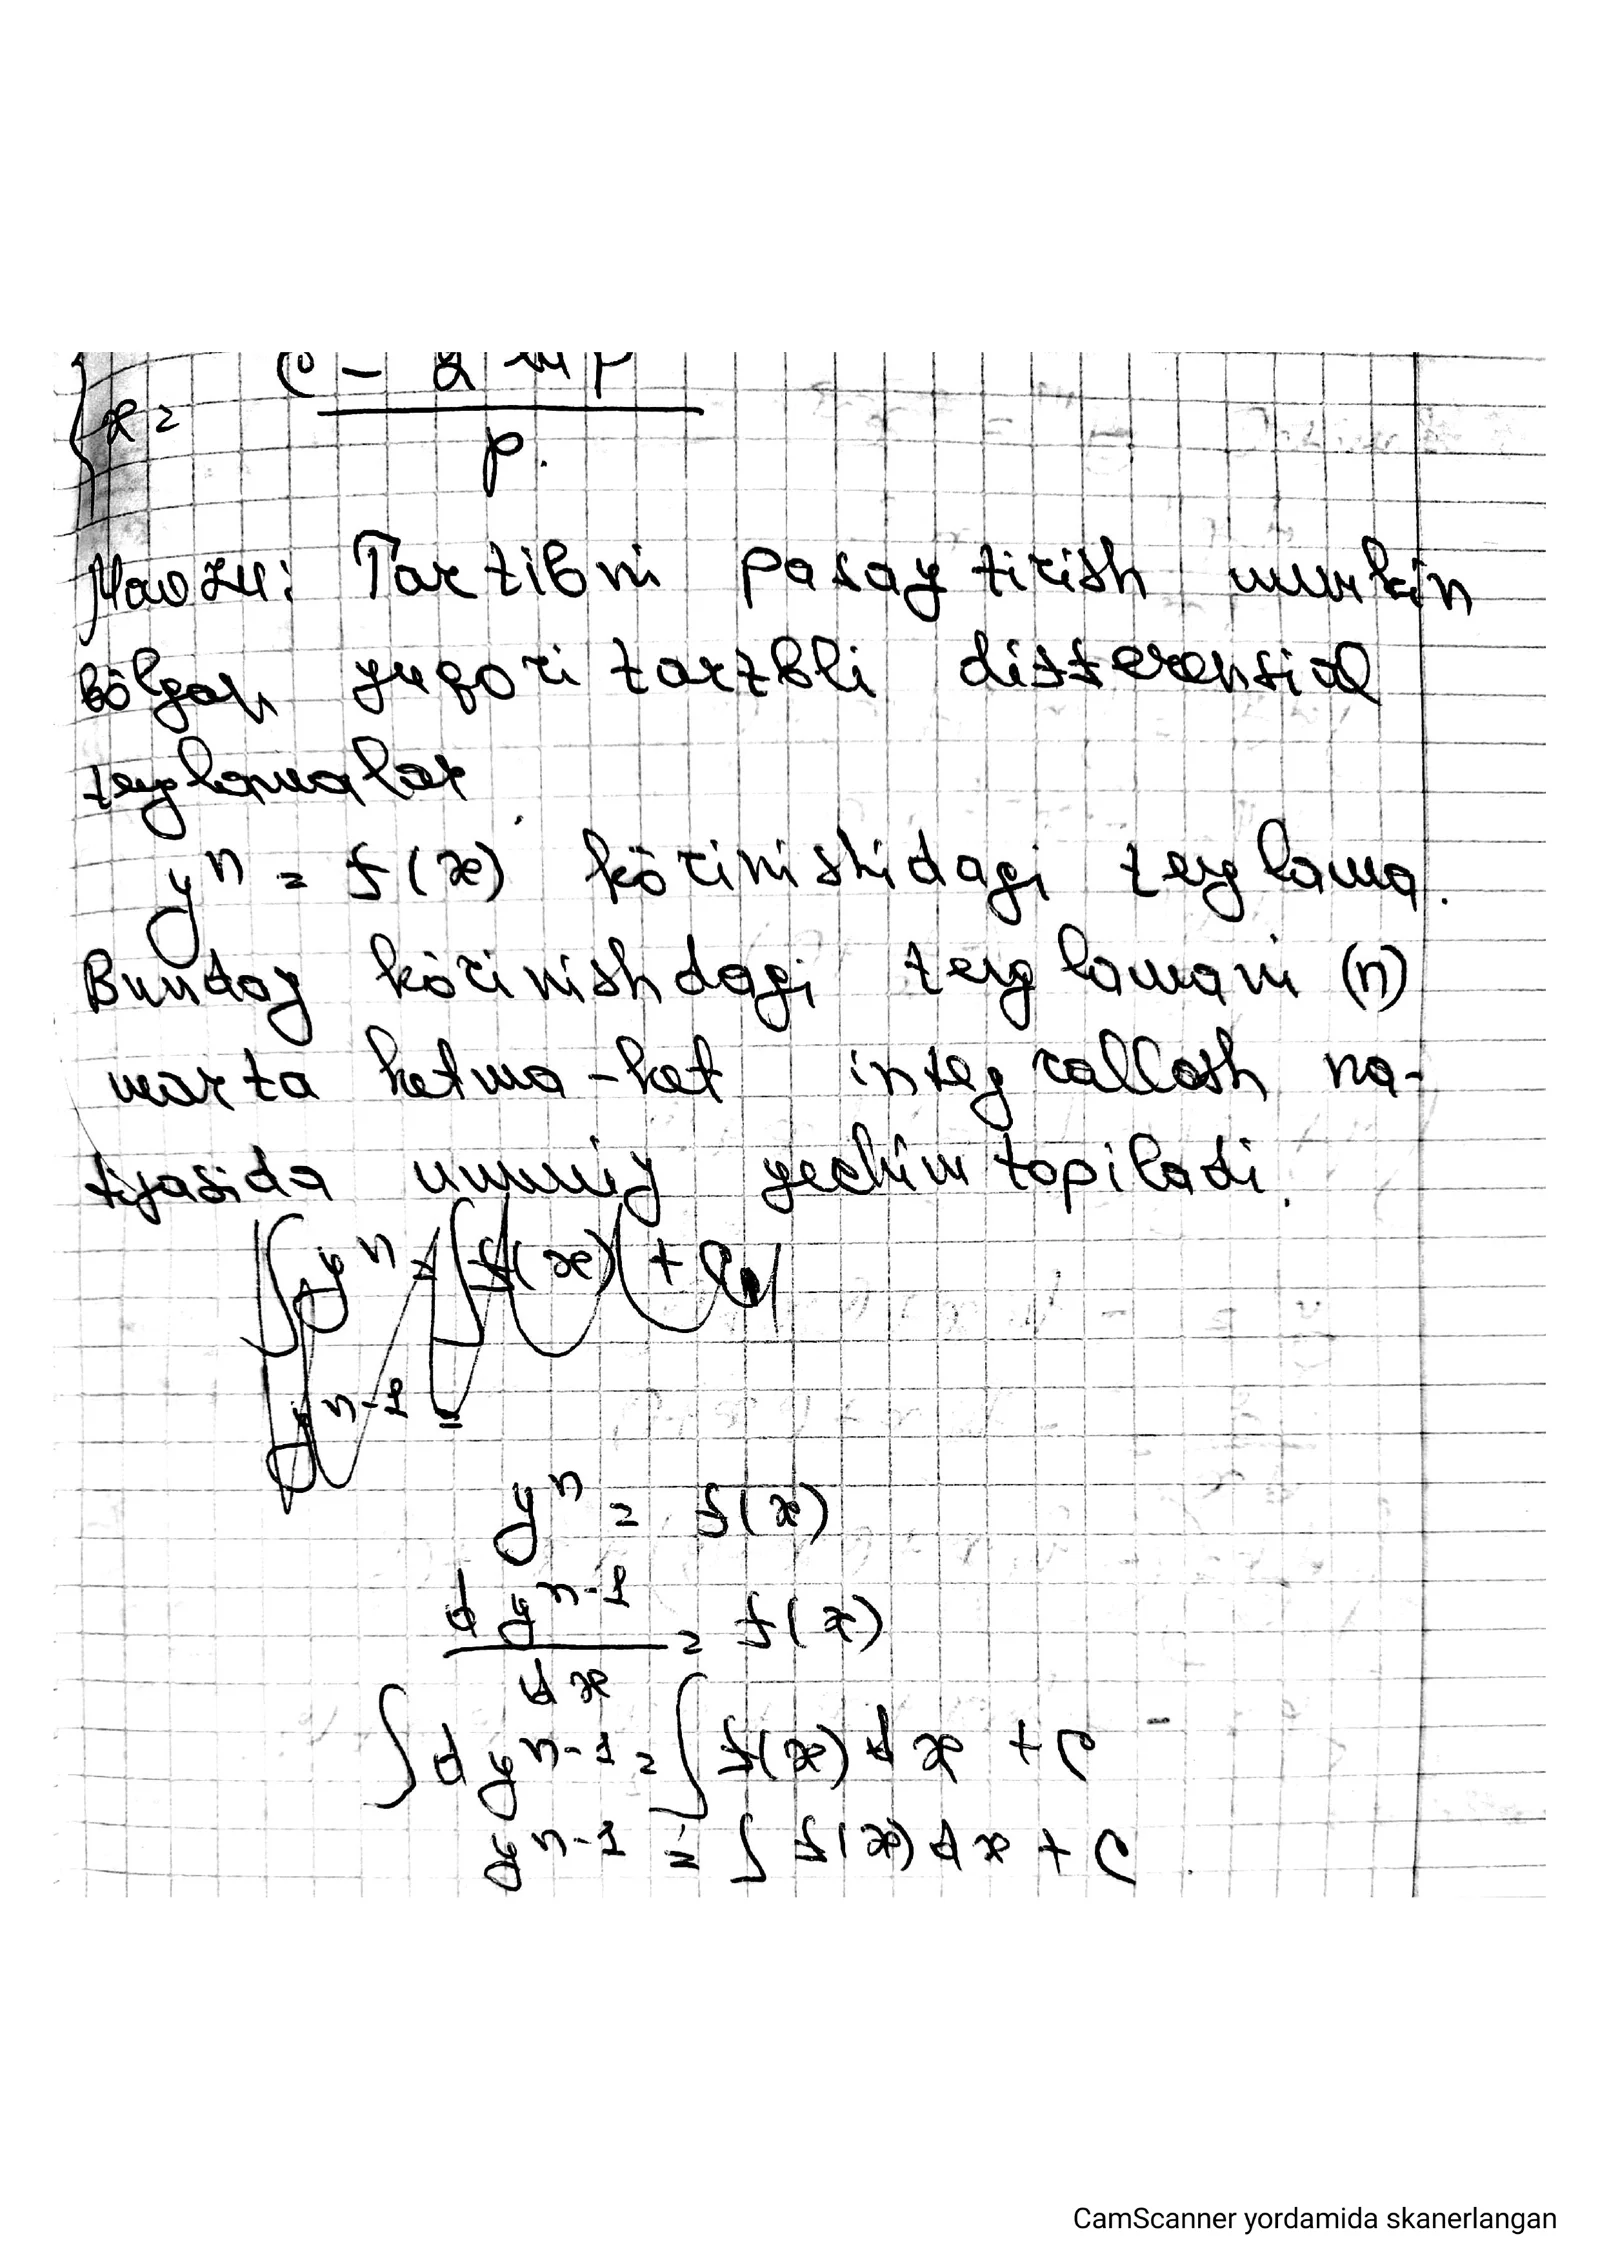 x =
p.
Mavzu: Tartibni pasaytirish mumkin
bõlgan yuqori tartibli differensial
tenglamalar
y^n = f(x) kõrinishidagi tenglama.
Bunday kõrinishdagi tenglamani (n)
marta ketma-ket integrallash na-
tijasida umumiy yechim topiladi.
∫ y^n = ∫ f(x) + C
y^n-1 =
y^n = f(x)
d y^n-1
= f(x)
dx
∫ d y^n-1 = ∫ f(x) dx + C
y^n-1 = ∫ f(x) dx + C
CamScanner yordamida skanerlangan